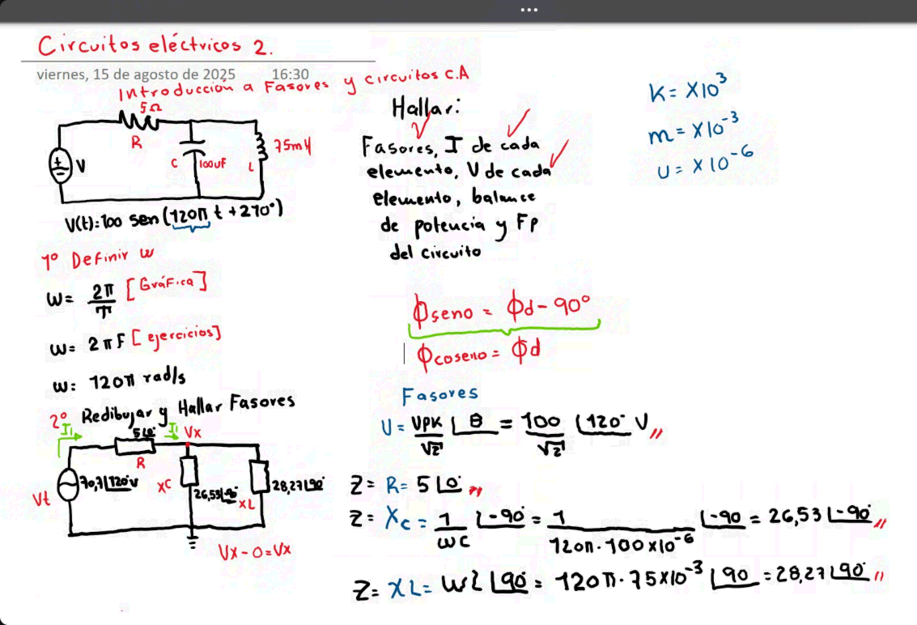 Circuitos eléctricos 2.
viernes, 15 de agosto de 2025 16:30
Introducción a Fasores y circuitos C.A
5Ω
R
V
C
100uF
L
75mH
V(t)=100 sen (120π t + 210°)
Hallar:
Fasores, I de cada
elemento, V de cada
elemento, balance
de potencia y Fp
del circuito
K = x10^3
m = x10^-3
u = x10^-6
1° Definir w
w= 2π/T [Gráfica]
w= 2πF [ejercicios]
w: 120π rad/s
ϕseno = ϕd - 90°
ϕcoseno = ϕd
2° Redibujar y Hallar Fasores
I1
5∠0°
I1
Vx
R
Vt
70,7∠120°v
XC
26,53∠-90
XL
28,27∠90°
Vx-0=Vx
Fasores
U= VPK/√2 ∠θ = 100/√2 ∠120° V
Z= R= 5∠0°
Z= XC = 1/wC ∠-90 = 1/120π·100x10^-6 ∠-90 = 26,53∠-90
Z= XL= WL∠90° = 120π·75x10^-3 ∠90 = 28,27∠90°